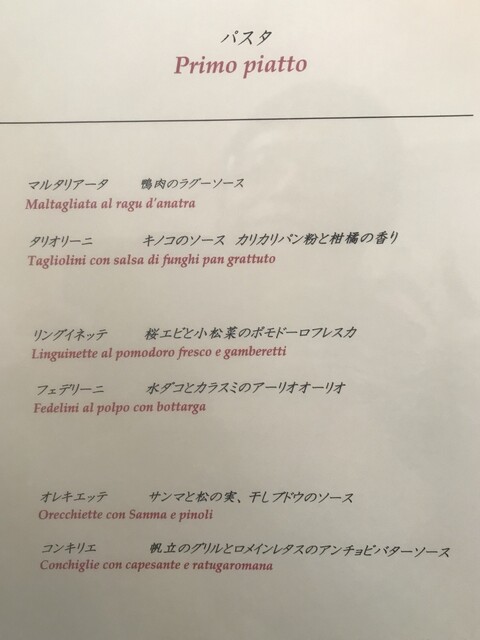 パスタ
Primo piatto
マルタリアータ 鴨肉のラグーソース
Maltagliata al ragu d'anatra
タリオリーニ キノコのソース カリカリパン粉と柑橘の香り
Tagliolini con salsa di funghi pan grattuto
リングイネッテ 桜エビと小松菜のポモドーロフレスカ
Linguinette al pomodoro fresco e gamberetti
フェデリーニ 水ダコとカラスミのアーリオオーリオ
Fedelini al polpo con bottarga
オレキエッテ サンマと松の実、干しブドウのソース
Orecchiette con Sanma e pinoli
コンキリエ 帆立のグリルとロメインレタスのアンチョビバターソース
Conchiglie con capesante e ratugaromana